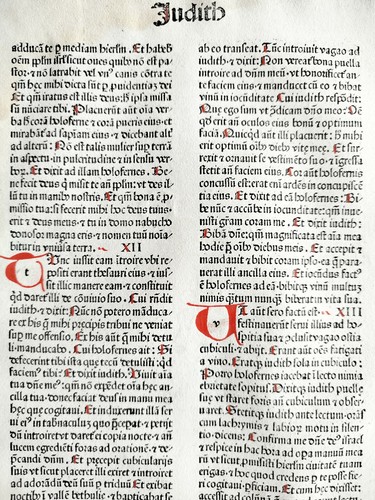 Judith
adducā te ꝑ mediam hierlm̄. Et habeb̄
oēm ppl̄m isrl̄ sicut oues quib̄ nō est pa-
stor: ⁊ nō latrabit vel vn̄ canis cōtra te
qm̄ hec mihi dicta sūt ꝑ ꝓuidentiaꝫ dei
Et qm̄ iratus est illis deus: h̄ ip̄a missa
sū nūciare tibi. Placuerūt aūt oīa ver
ba h̄ corā holoferne ⁊ corā pueris eius: et
mirabāt ad sapiam eius: ⁊ dicebant alt̄
ad alterū: Nō est talis mulier suꝑ terrā
in aspectu: in pulcritudine ⁊ in sensu ver-
boꝝ. Et dixit ad illam holofernes. Be
ne fecit deus q̄ misit te an̄ ppl̄m: vt des il
lū tu in manib̄ nostris. Et qm̄ bona ē ꝓ
missio tua: si fecerit mihi hoc deus tuus:
erit ⁊ deus meus: ⁊ tu in domo nabucho
donosor magna eris: ⁊ nomen tuū noīa
bitur in vniūsa terra. XII
Tunc iussit eam ītroire vbi re
positi erant thesauri eius: ⁊ ius-
sit illic manere eam: ⁊ constituit
qd̄ daret illi de cōuiuio suo. Cui rn̄dit
iudith ⁊ dixit: Nūc nō potero māduca-
re ex his q̄ mihi precipis tribui: ne veniat
suꝑ me offensio. Ex his aūt q̄ mihi detu-
li: manducabo. Cui holofernes ait: Si
defecerint tibi ista que tecū detulisti: qd̄
faciem tibi? Et dixit iudith. Viuit aīa
tua dn̄e me: qm̄ nō expēdet oīa hec an-
cilla tua: donec faciat deus in manu mea
hec que cogitaui. Et induxerunt illā ser
ui ei in tabnaculuꝫ quo p̄ceꝑat: ⁊ petijt
dū introiret: vt daret ei copia nocte ⁊ an
lucem egrediēdi foras ad orationē: ⁊ de-
p̄candi dn̄m. Et precepit cubicularijs
suis vt sicut placeret illi exiret ⁊ introiret
ad adorādū deū suū ꝑ triduū Et exibat
noctib̄ in vallē bethulie: ⁊ baptizabat se
ab eo transeat. Tūc introiuit vagao ad
iudith: ⁊ dixit: Non vereat bona puella
introire ad dn̄m meū: vt honorificet an-
te faciem eius: ⁊ manducet cū eo ⁊ bibat
vinū in iocūditate Cui iudith respōdit:
Que ego sum vt ↄ̄dicam dn̄o meo: Oē
qd̄ erit an̄ oculos eius bonū ⁊ optimum
faciā. Quicqd̄ aūt illi placuerit: h̄ mihi
erit optimū oīb̄ dieb̄ vite meę. Et sur-
rexit ⁊ ornauit se vestimēto suo: ⁊ īgressa
stetit an̄ faciem eius. Cor aūt holofernis
concussū est: erat em̄ ardēs in concupiscē
tia eius. Et dixit ad eā holofernes: Bi-
be nūc ⁊ accūbe in iocunditate: qm̄ inue-
nisti gratiam coram me. Et dixit iudith:
Bibā dn̄e: qm̄ magnificata est aīa mea
hodie p̄ oīb̄ diebus meis. Et accepit ⁊
mandauit ⁊ bibit coram ip̄o: ea q̄ para-
uerat illi ancilla eius. Et iocūdus fact̄
ē holofernes ad eā: bibitqꝫ vinū multuꝫ
nimis q̄ntum nunq̄ biberat in vita sua.
Ut aūt sero factū est: XIII
festinauerūt serui illius ad ho
spitia sua: ⁊ ↄ̄clusit vagao ostia
cubiculi: ⁊ abijt. Erant aūt oēs fatigati
a vino. Eratqꝫ iudith sola in cubiculo:
Porro holofernes iacebat ī lecto nimia
ebrietate sopitus. Dixitqꝫ iudith puelle
suę vt staret foris an̄ cubiculum: ⁊ obser-
uaret. Stetitqꝫ iudith ante lectum: orās
cum lachrymis ⁊ labioꝝ motu in silen-
tio: dicens: Confirma me dn̄e de isrl̄: ⁊
respice in hac hora ad opera manuū mea
rū: vt sicut ꝓmisisti hierl̄m ciuitatē tuam
erigas: ⁊ hoc quod credens ꝑ te posse fie-
ri cogitaui: ꝑficiam. Et cum hec dixisset